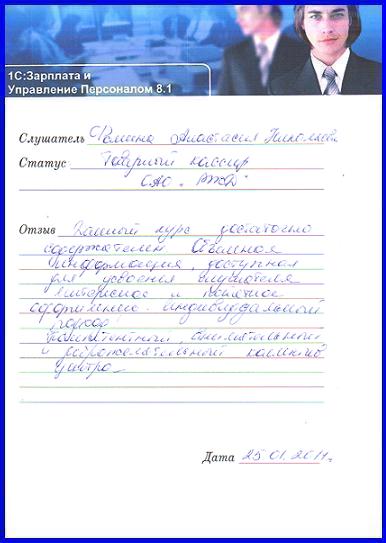 1С:Зарплата и
Управление Персоналом 8.1
Слушатель Фомина Анастасия Николаевна
Статус Товарный кассир
ОАО "РЖД"
Отзыв Данный курс достаточно
содержателен Объемная
информация, доступная
для усвоения слушателя
Интересное и понятное
оформление. Индивидуальный
подход
Компетентный, внимательный
и доброжелательный коллектив
центра
Дата 25.01.2011г.